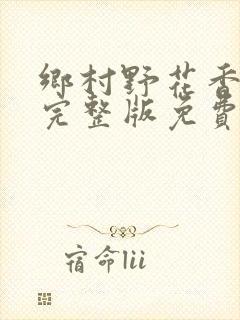 鄉村野花香
完整版免費
宿命lii